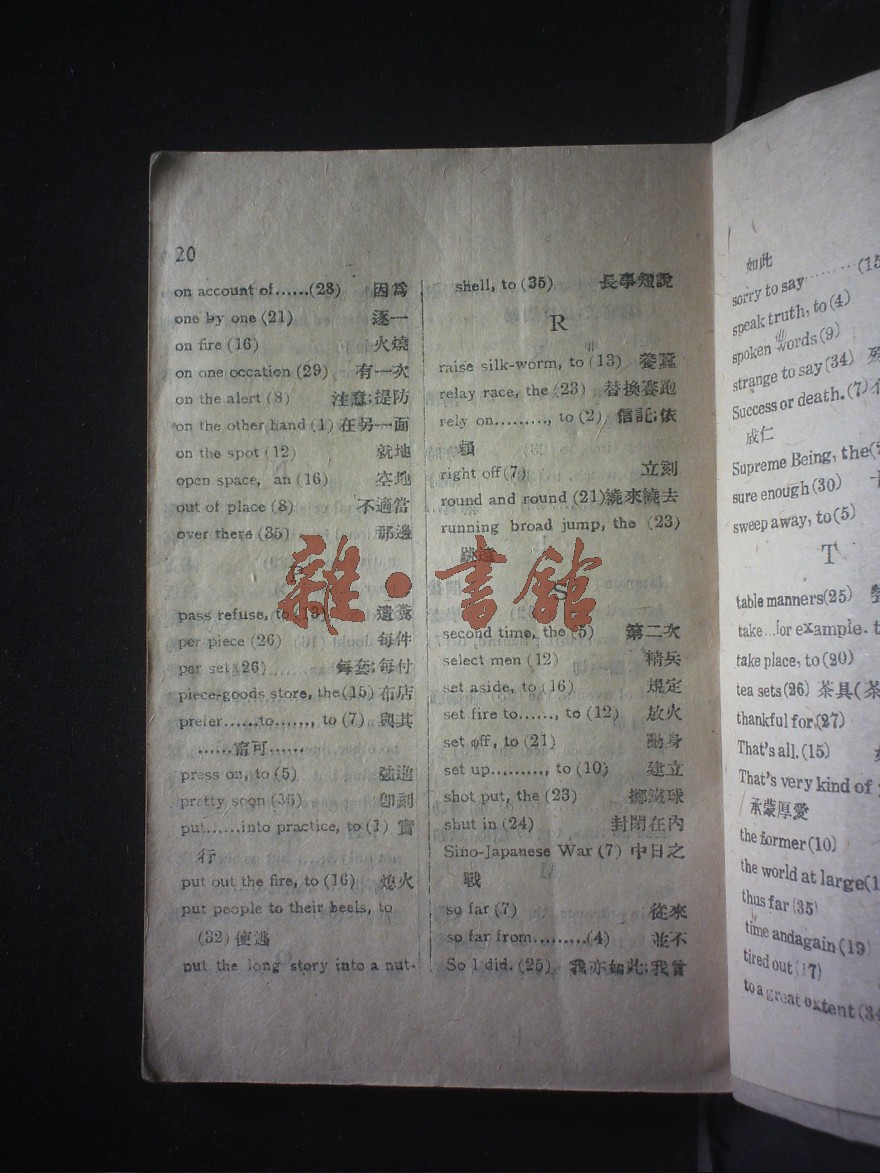 20
on account of......(28) 因爲
one by one (21) 逐一
on fire (16) 火燒
on one occation (29) 有一次
on the alert (8) 注意;提防
on the other hand (1) 在另一面
on the spot (12) 就地
open space, an (16) 空地
out of place (8) 不適當
over there (35) 那邊
P
pass refuse, to (13) 遺糞
per piece (26) 每件
per set (26) 每套;每付
piece-goods store, the (15) 布店
prefer......to......., to (7) 與其
......甯可......
press on, to (5) 強迫
pretty soon (35) 即刻
put......into practice, to (1) 實
行
put out the fire, to (16) 熄火
put people to their heels, to
(32) 使逃
put the long story into a nut-
shell, to (35) 長事短說
R
raise silk-worm, to (13) 養蠶
relay race, the (23) 替換賽跑
rely on........., to (2) 信託;依
賴
right off (7) 立刻
round and round (21) 繞來繞去
running broad jump, the (23)
跳遠
S
second time, the (5) 第二次
select men (12) 精兵
set aside, to (16) 規定
set fire to......, to (12) 放火
set off, to (21) 動身
set up........., to (10) 建立
shot put, the (23) 擲鐵球
shut in (24) 封閉在內
Sino-Japanese War (7) 中日之
戰
so far (7) 從來
so far from.........(4) 並不
So I did. (25) 我亦如此;我曾
雜·書館
如此
sorry to say.........(15
speak truth, to (4)
spoken words (9)
strange to say (34)
Success or death. (7)
成仁
Supreme Being, the
sure enough (30)
sweep away, to (5)
T
table manners (25)
take...for example. t
take place, to (20)
tea sets (26) 茶具(茶
thankful for (27)
That's all. (15)
That's very kind of
承蒙厚愛
the former (10)
the world at large (1
thus far (35)
time andagain (19)
tired out (17)
to a great extent (34